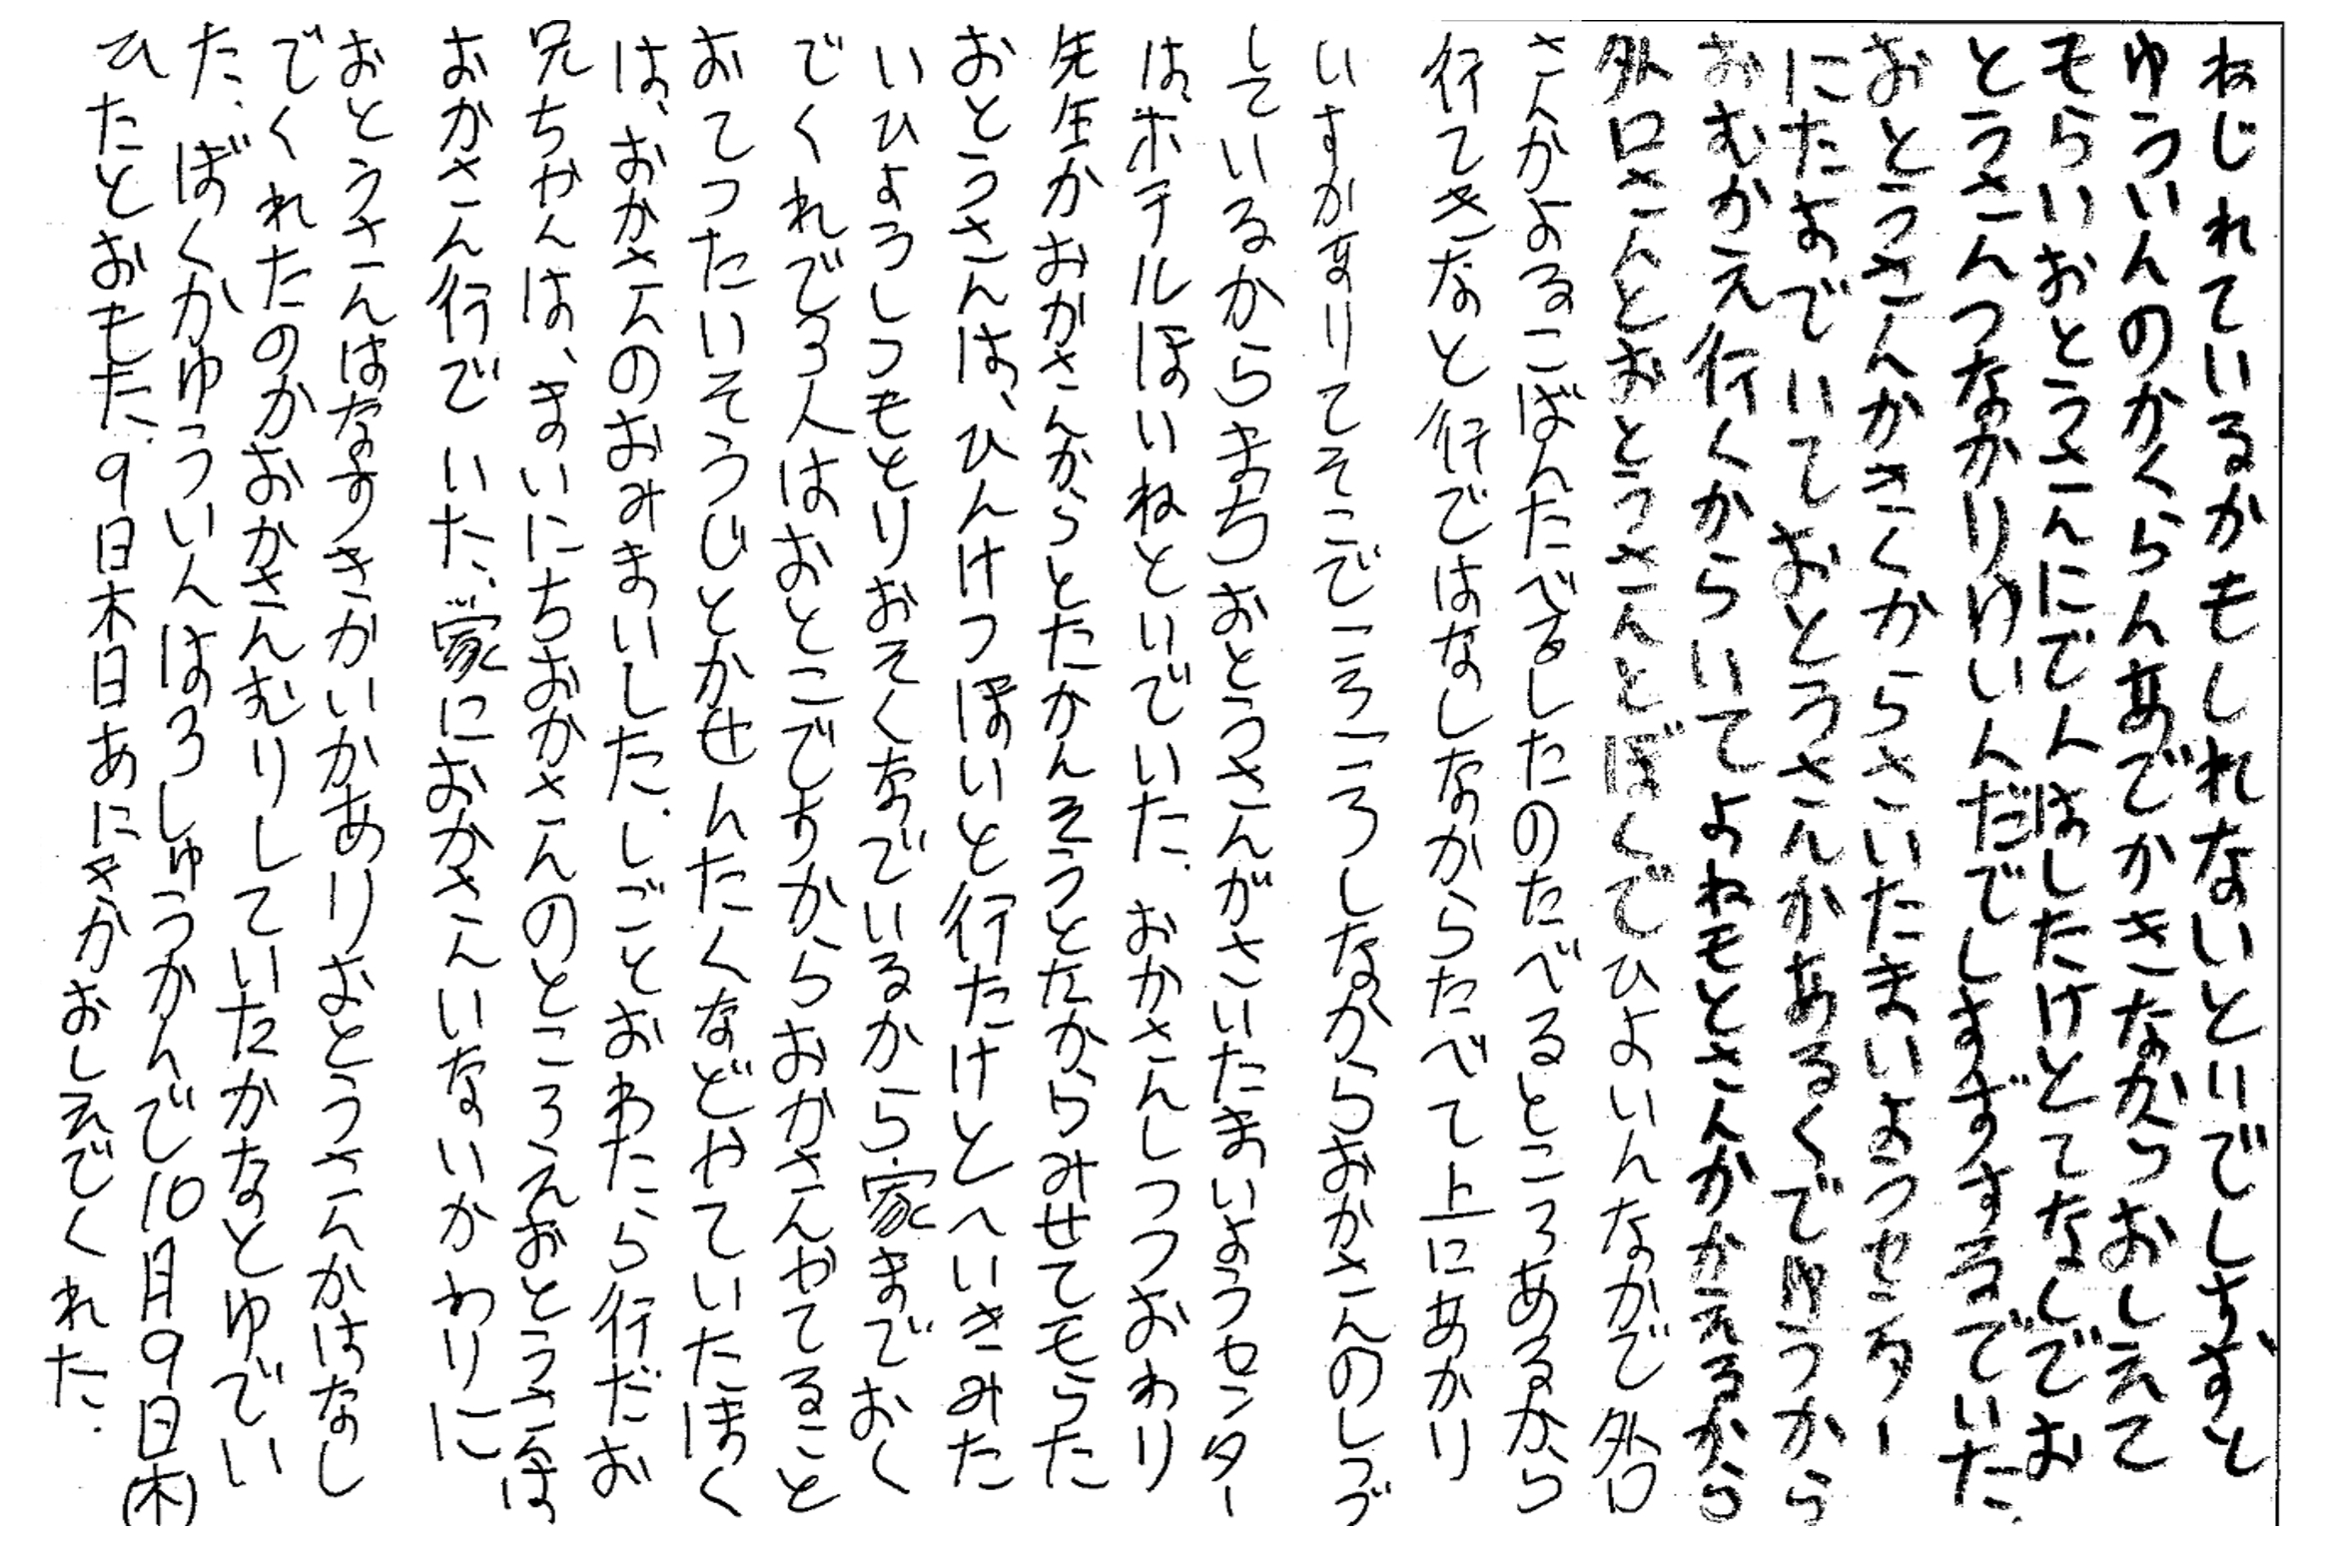 ねじれているかもしれないといでします、すと
ゆういんのかくらんあでかきなからおしえて
モらいおとうさんにでんはしたけとてなしでお
とうさんつなかりゆいんだでしますするでいた.
おとうさんかさくからさいたまいようセンター
にたよでいておとうさんかあるくでゆうから
おむかえ行くからいてよねモとさんかかえるから
外口さんとおとうさんとぼくでひよいんなかで外口
さんかよるこばんたべるしたのたべるところあるから
行てきなと行ではなしなからたべて上にあかり
いすかありてそこでころころしなからおかさんのしづ
しているからまちおとうさんがさいたまいようセンター
は、ホテルほいねといでいた.おかさんしつつおわり
先生かおかさんからとたかんそうとたからみせてモらた
おとうさんは、ひんけつほいと行たけとへいきみた
いひようしつモとりおそくなでいるから.家までおく
でくれでろ人はおとこですからおかさんやてること
おてつたいそうじとかせんたくなどやていたほく
は、おかさんのおみまいした.しごとおわたら行だお
兄ちゃんは、まいにちおかさんのところえおとうさんは
おかさん行でいた、家におかさんいないかわりに
おとうさんはなすきかいかありおとうさんかはなし
でくれたのかおかさんむりしていたかなとゆでい
た.ぼくがゆういんはろしゅうかんで10月9日(木)
ひたとおもた.9日木日あにきかおしえでくれた.